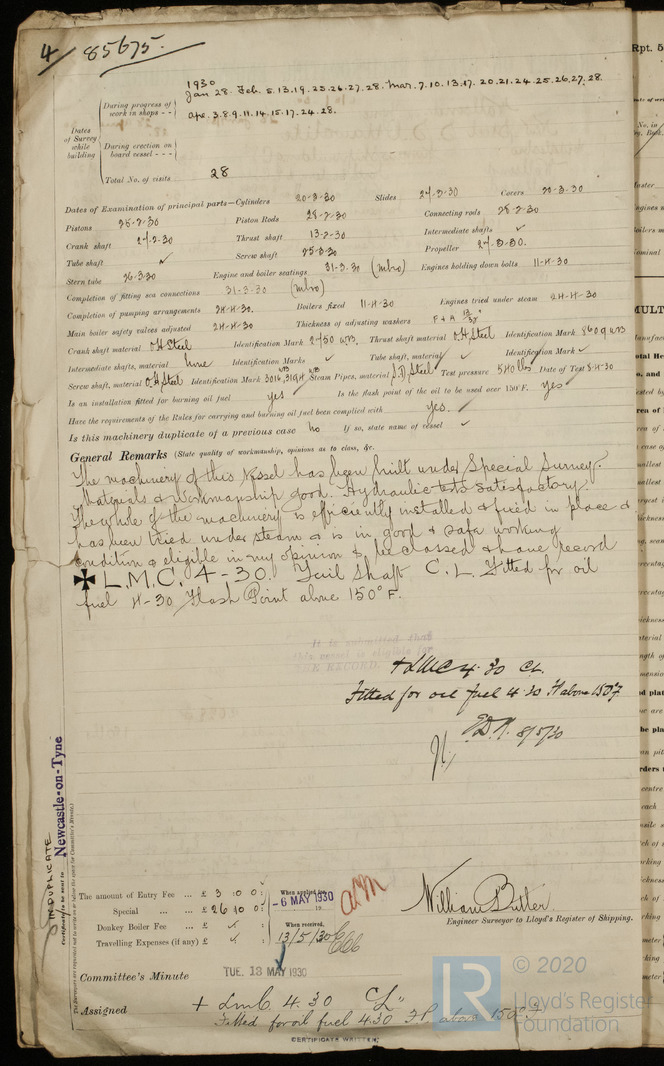 4 85675.
1930
Jan 28. Feb. 5.13.19.25.26.27.28. Mar. 7.10.13.17.20.21.24.25.26.27.28.
During progress of work in shops - -
Apr. 3.8.9.11.14.15.17.24.28.
Dates of Survey while building
During erection on board vessel - - -
Total No. of visits 28
Dates of Examination of principal parts—Cylinders 20-3-30 Slides Covers 20-3-30
Pistons 25-2-30 Piston Rods 25-2-30 Connecting rods 25-2-30
Crank shaft Thrust shaft 13-2-30 Intermediate shafts ✓
Tube shaft ✓ Screw shaft 25-3-30 Propeller
Stern tube 26-3-30 Engine and boiler seatings 31-3-30 (Mbro) Engines holding down bolts 11-4-30
Completion of fitting sea connections 31-3-30 (Mbro)
Completion of pumping arrangements 24-4-30. Boilers fixed 11-4-30 Engines tried under steam 24-4-30
Main boiler safety valves adjusted 24-4-30 Thickness of adjusting washers F & A
Crank shaft material O.H. Steel Identification Mark Thrust shaft material O.H. Steel Identification Mark
Intermediate shafts, material none Identification Marks ✓ Tube shaft, material ✓ Identification Mark ✓
Screw shaft, material O.H. Steel Identification Mark Steam Pipes, material S.D. Steel Test pressure 540 lbs. Date of Test 8-4-30
Is an installation fitted for burning oil fuel yes Is the flash point of the oil to be used over 150°F. yes
Have the requirements of the Rules for carrying and burning oil fuel been complied with yes.
Is this machinery duplicate of a previous case no If so, state name of vessel ✓
General Remarks (State quality of workmanship, opinions as to class, &c.
The machinery of this vessel has been built under Special Survey.
Materials & Workmanship good. Hydraulic tests satisfactory.
The whole of the machinery is efficiently installed & fixed in place &
has been tried under steam & is in good & safe working
condition & eligible in my opinion to be classed & have record
✠ L.M.C. 4-30. Tail Shaft C.L. Fitted for oil
fuel 4-30 Flash Point above 150°F.
It is submitted that
this vessel is eligible for
THE RECORD.
+ LMC 4.30 CL.
Fitted for oil fuel 4.30 F above 150°F
8/5/30
IN DUPLICATE
Newcastle-on-Tyne
Certificate to be sent to
The amount of Entry Fee ... £ 3 : 0 : 0 :
Special ... ... £ 26 : 10 : 0 :
Donkey Boiler Fee ... £ ✓ :
Travelling Expenses (if any) £ ✓ :
When applied for,
- 6 MAY 1930
When received,
13/5/30
William Butler
Engineer Surveyor to Lloyd's Register of Shipping.
Committee's Minute TUE. 13 MAY 1930
Assigned + LMC 4.30 CL
Fitted for oil fuel 4.30 FP above 150°F
CERTIFICATE WRITTEN
Rpt. 5
LR © 2020
Lloyd's Register
Foundation